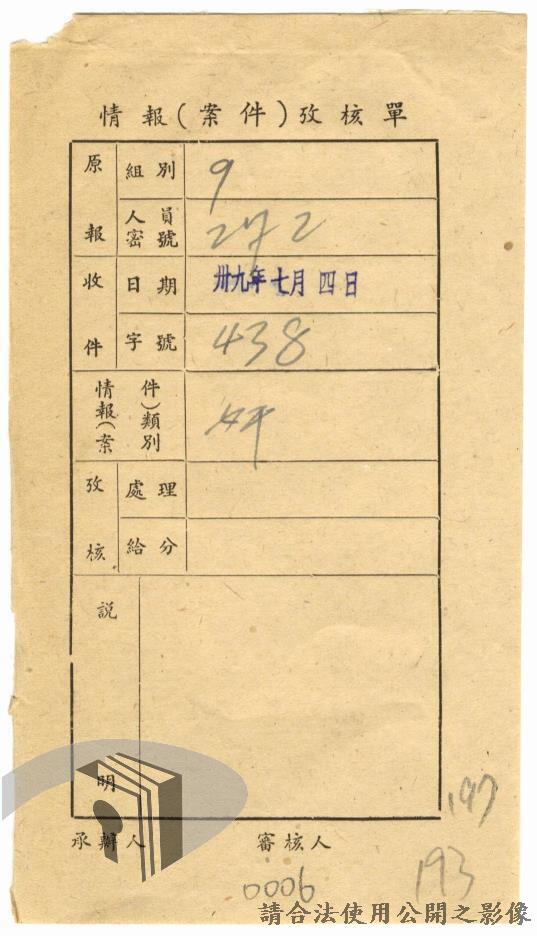 情報(案件)攷核單
原報 組別 9
人員密號 272
收件 日期 卅九年七月四日
字號 438
情報(案件)類別 奸
攷核 處理
給分
說明
197
承辦人 審核人
0006 193
請合法使用公開之影像